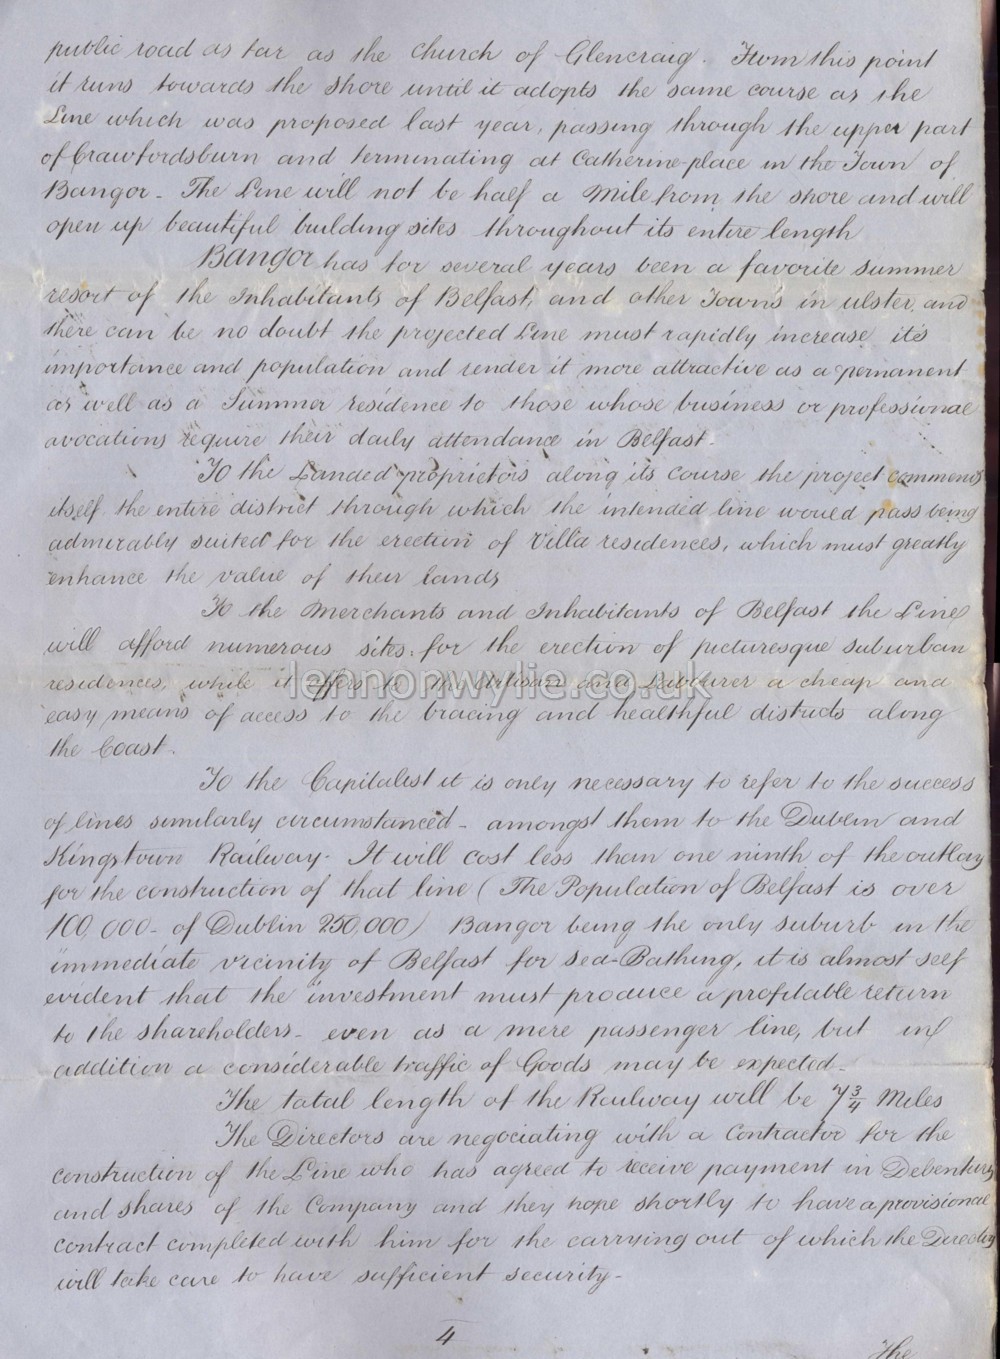 public road as far as the Church of Glencraig. From this point
it runs towards the shore until it adopts the same course as the
Line which was proposed last year, passing through the upper part
of Crawfordsburn and terminating at Catherine-place in the Town of
Bangor - The Line will not be half a Mile from the shore and will
open up beautiful building sites throughout its entire length
Bangor has for several years been a favorite summer
resort of the Inhabitants of Belfast, and other Towns in ulster, and
there can be no doubt the projected Line must rapidly increase its
importance and population and render it more attractive as a permanent
as well as a Summer residence to those whose business or professional
avocations require their daily attendance in Belfast.
To the Landed proprietors along its course the project commends
itself. the entire district through which the intended line would pass being
admirably suited for the erection of Villa residences, which must greatly
enhance the value of their lands
To the Merchants and Inhabitants of Belfast the Line
will afford numerous sites. for the erection of picturesque suburban
residences, while it offers to the Artisan and Labourer a cheap and
lennonwylie.co.uk
easy means of access to the bracing and healthful districts along
the Coast.
To the Capitalist it is only necessary to refer to the success
of lines similarly circumstanced - amongst them to the Dublin and
Kingstown Railway. It will cost less than one ninth of the outlay
for the construction of that line (The Population of Belfast is over
100,000 - of Dublin 250,000) Bangor being the only suburb in the
immediate vicinity of Belfast for Sea-Bathing, it is almost self
evident that the investment must produce a profitable return
to the shareholders - even as a mere passenger line, but in
addition a considerable traffic of Goods may be expected -
The total length of the Railway will be 7 3/4 Miles
The Directors are negociating with a Contractor for the
construction of the Line who has agreed to receive payment in Debentures
and shares of the Company and they hope shortly to have a provisional
contract completed with him for the carrying out of which the Directors
will take care to have sufficient security -
4
The